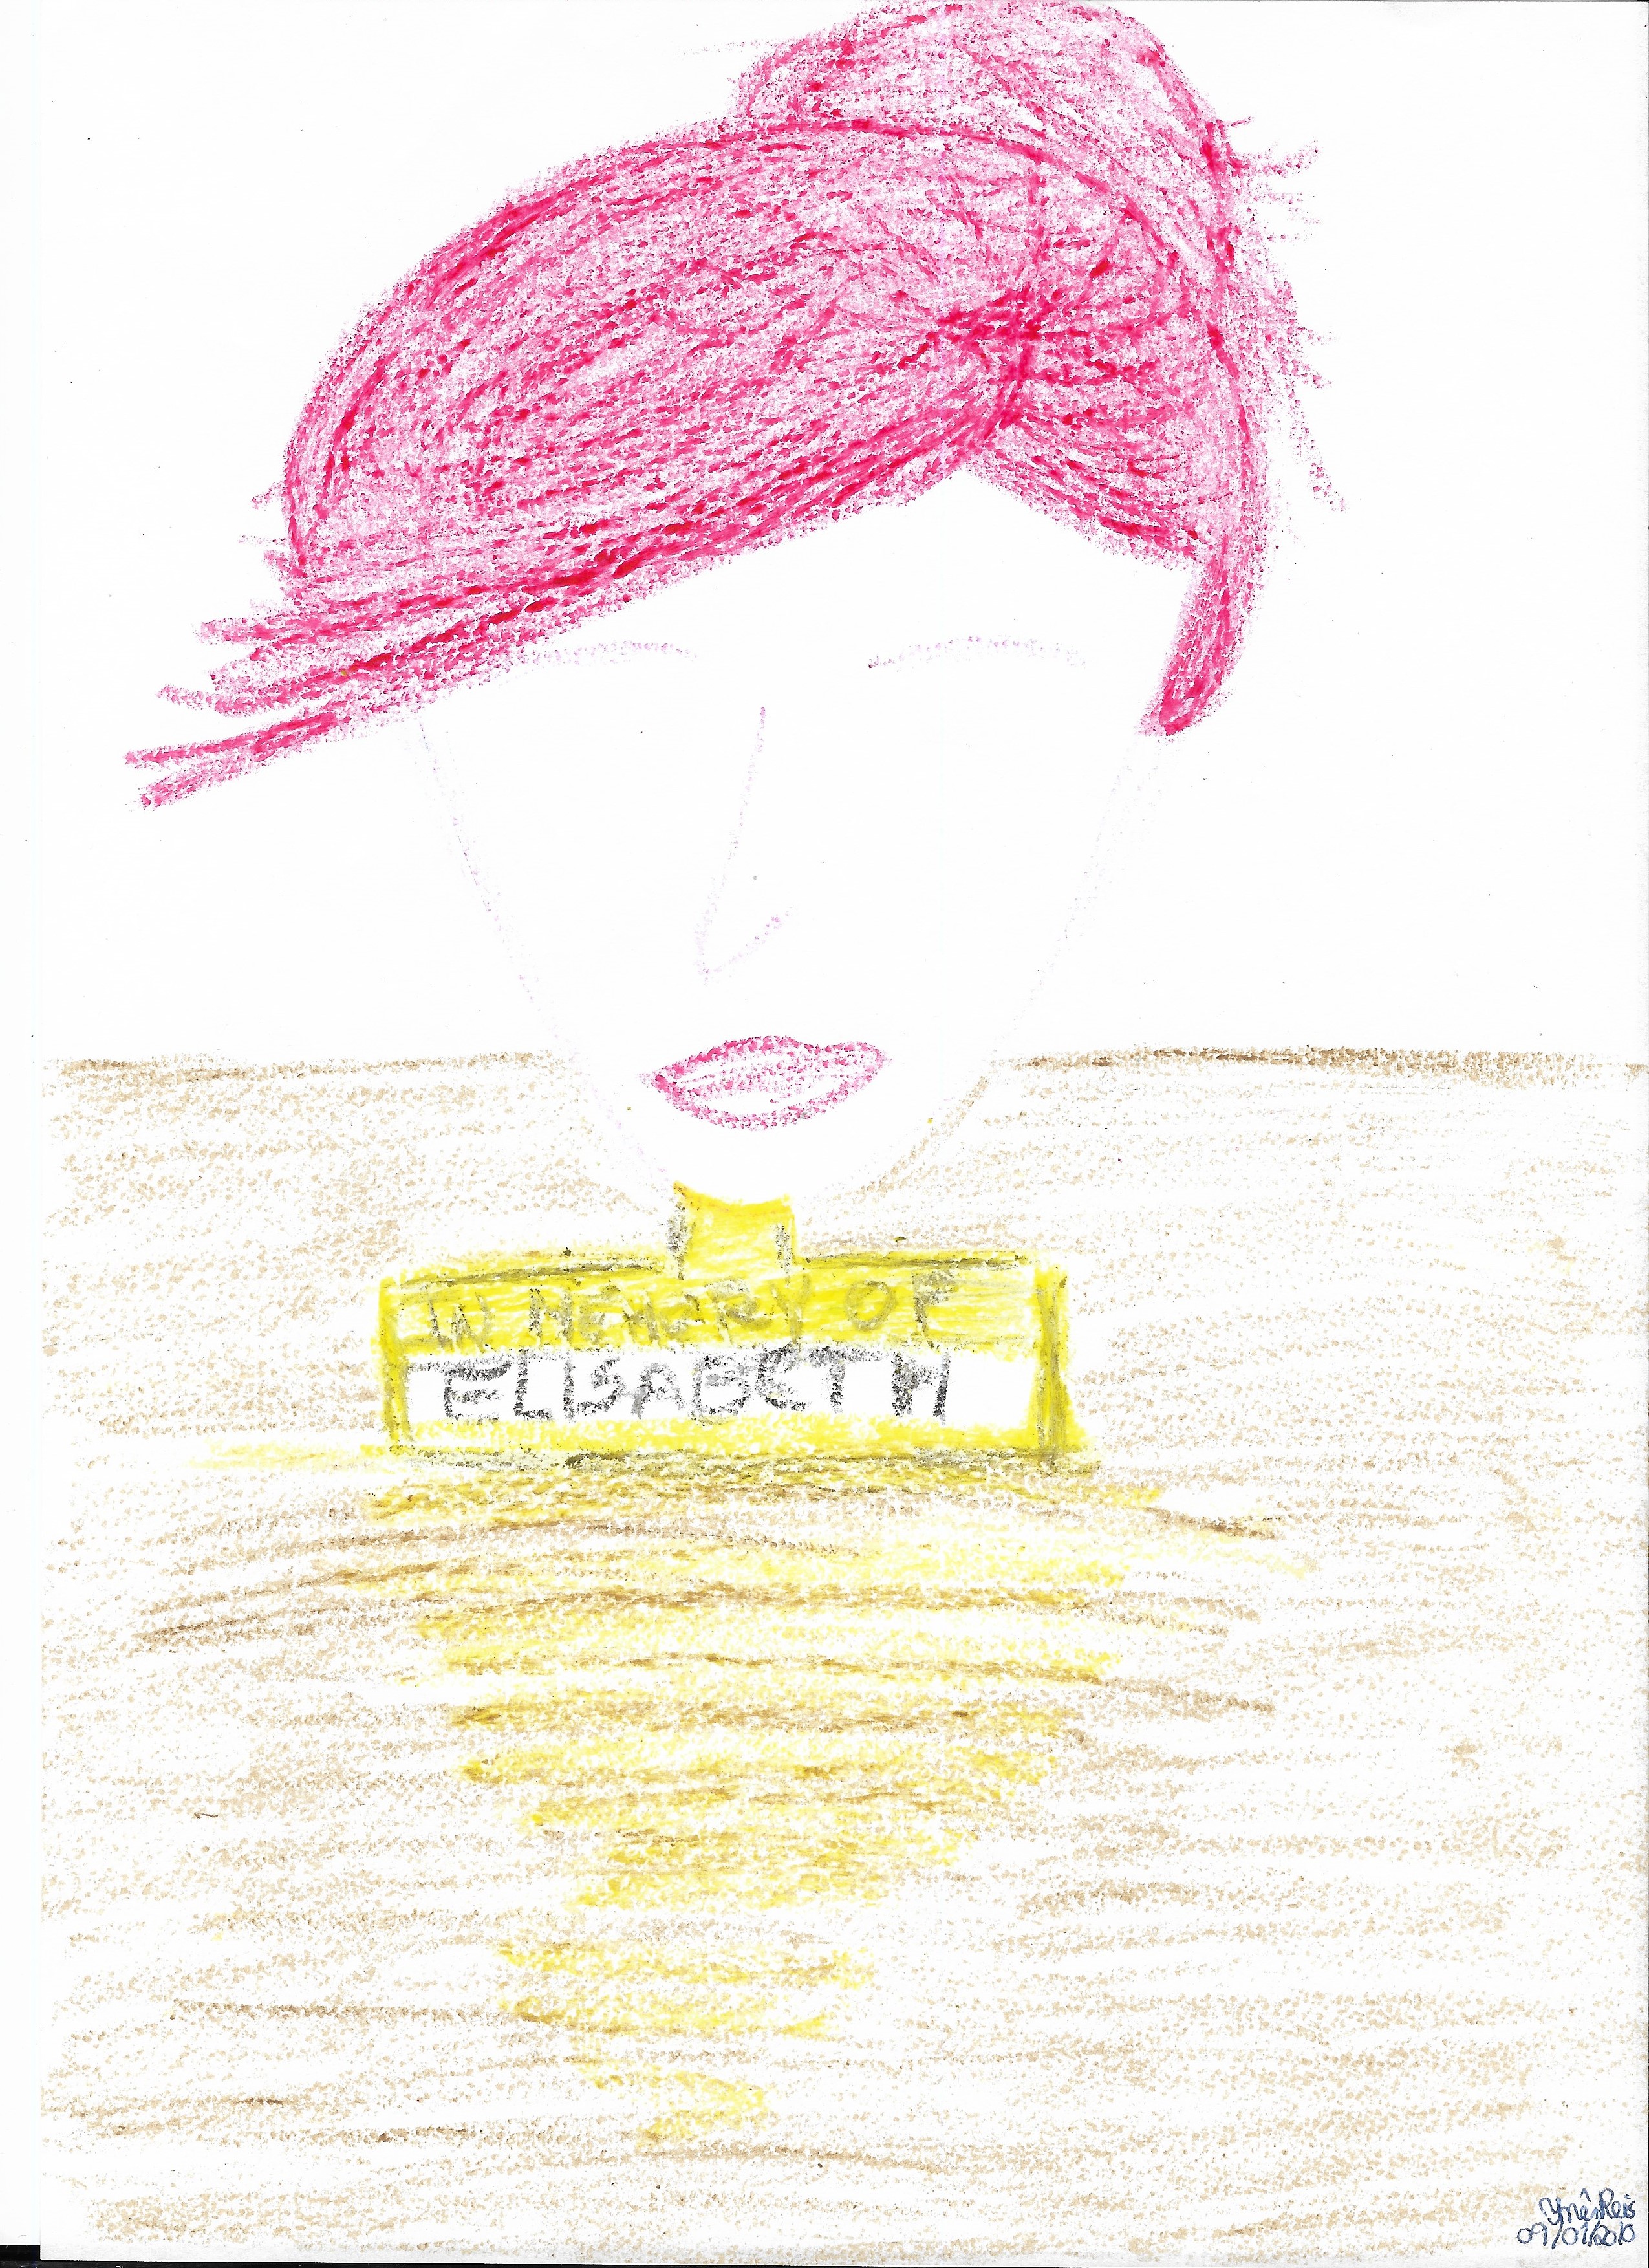 IN MEMORY OF
ELISABETH
Ynê Reis
09/01/2010